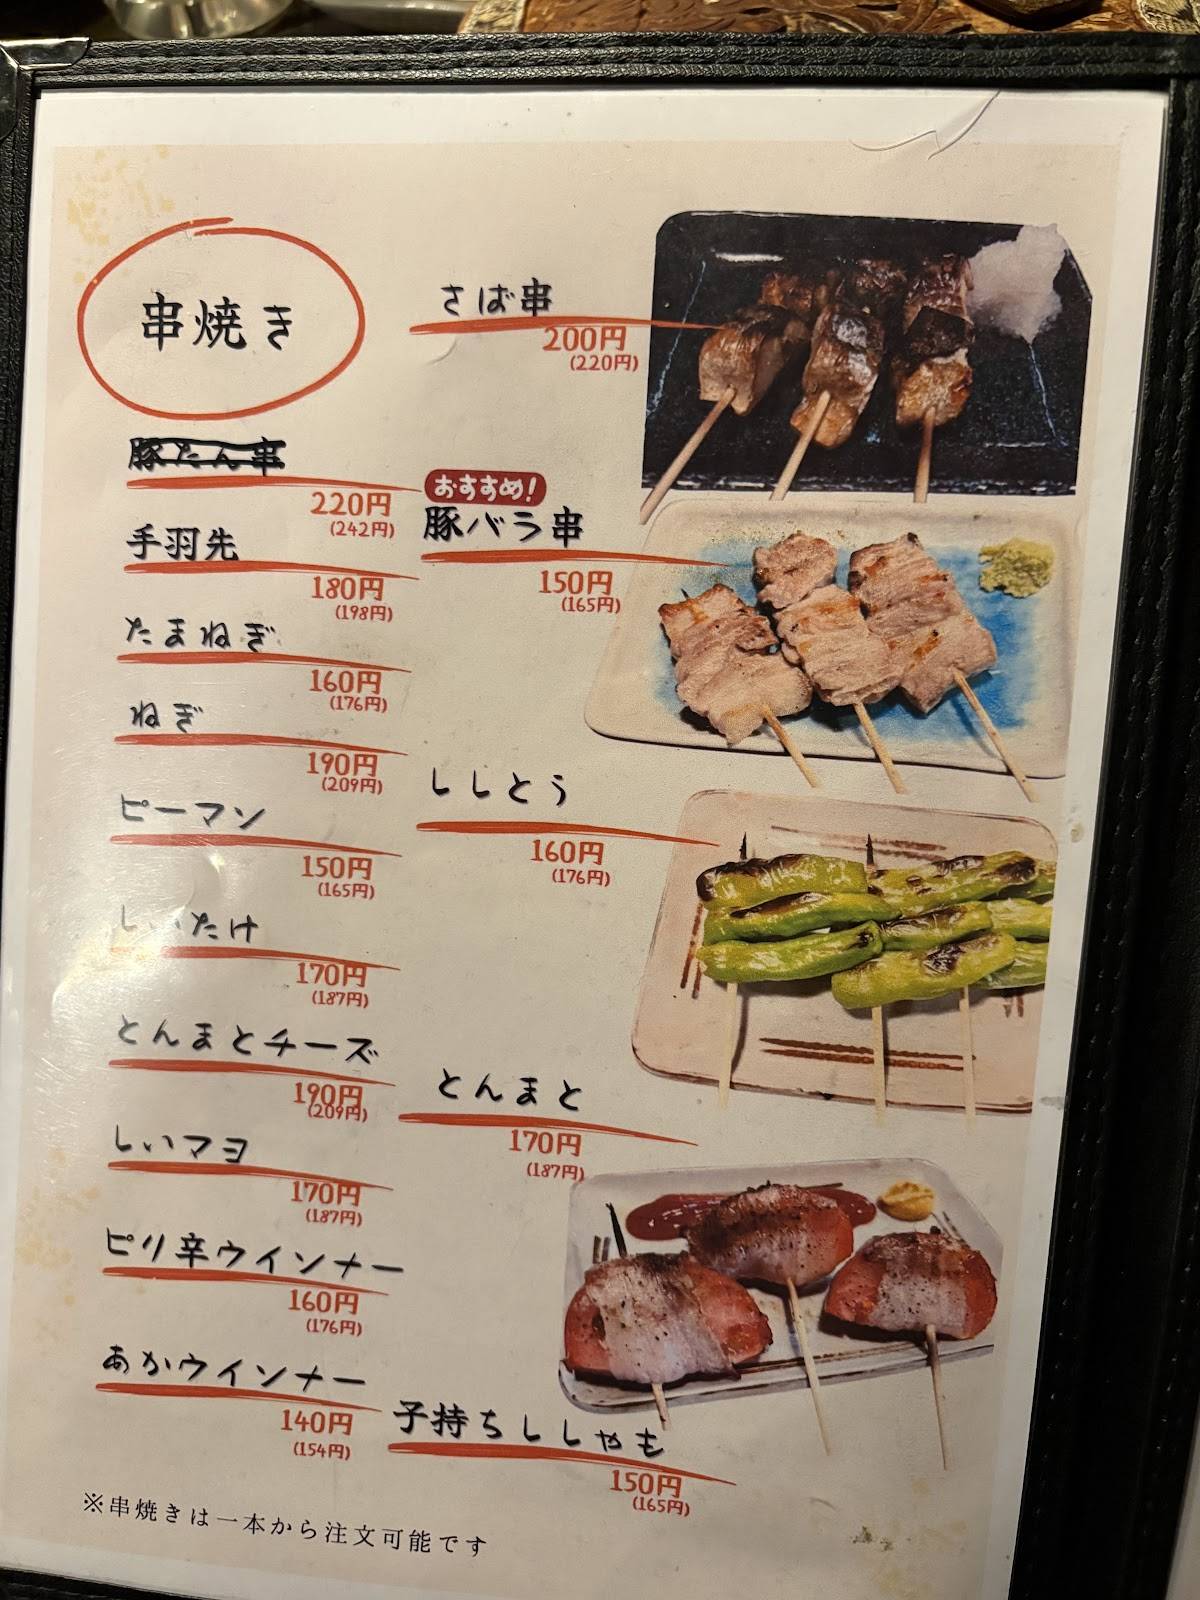 串焼き
豚たん串
220円
(242円)
手羽先
180円
(198円)
たまねぎ
160円
(176円)
ねぎ
190円
(209円)
ピーマン
150円
(165円)
しいたけ
170円
(187円)
とんまとチーズ
190円
(209円)
しいマヨ
170円
(187円)
ピリ辛ウインナー
160円
(176円)
あかウインナー
140円
(154円)
さば串
200円
(220円)
おすすめ!
豚バラ串
150円
(165円)
ししとう
160円
(176円)
とんまと
170円
(187円)
子持ちししゃも
150円
(165円)
※串焼きは一本から注文可能です